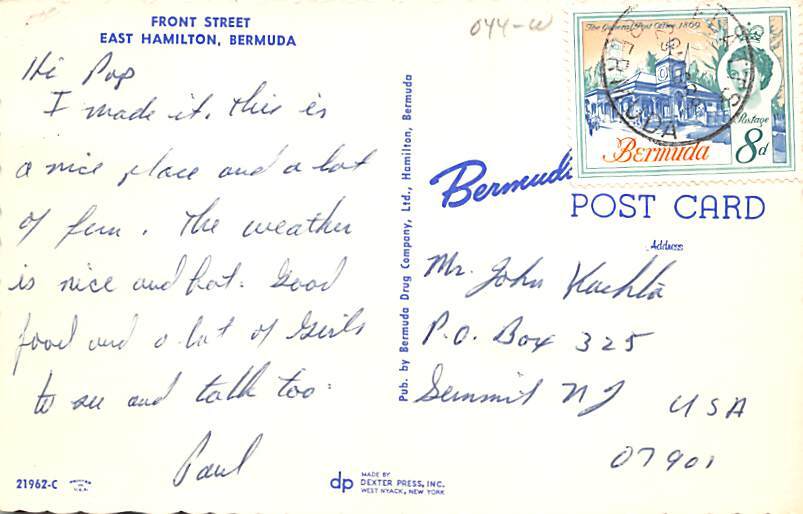 FRONT STREET
EAST HAMILTON, BERMUDA
044-W
Hi Pop
I made it. This is
a nice place and a lot
of fun. The weather
is nice and hot. Good
food and a lot of Girls
to see and talk too.
Paul
21962-C
Pub. by Bermuda Drug Company, Ltd., Hamilton, Bermuda
dp
MADE BY
DEXTER PRESS, INC.
WEST NYACK, NEW YORK
The General Post Office 1869
Postage
Bermuda
8d
BERMUDA
Bermudi
POST CARD
Address
Mr. John Kuchta
P.O. Box 325
Summit NJ USA
07901